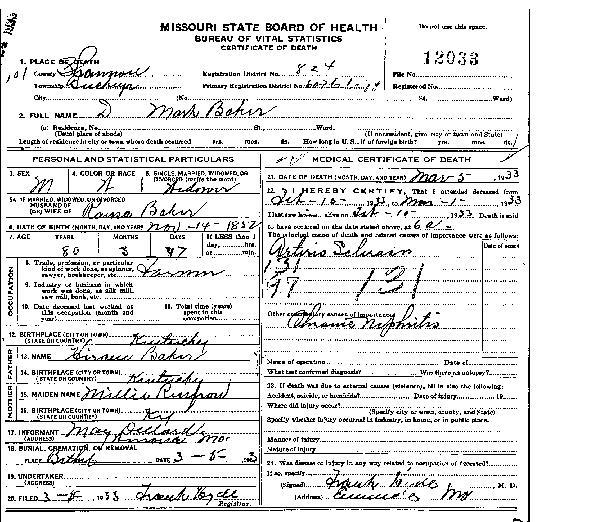 MISSOURI STATE BOARD OF HEALTH
BUREAU OF VITAL STATISTICS
CERTIFICATE OF DEATH
Do not use this space.
12033
1. PLACE OF DEATH
County Shannon Registration District No. 824 File No.
Township Primary Registration District No. Registered No.
City (No. St. Ward)
2. FULL NAME D Mark Baker
(a) Residence, No. St., Ward.
(Usual place of abode) (If nonresident, give city or town and State)
Length of residence in city or town where death occurred yrs. mos. ds. How long in U.S., if of foreign birth? yrs. mos. ds.
PERSONAL AND STATISTICAL PARTICULARS
3. SEX 4. COLOR OR RACE 5. SINGLE, MARRIED, WIDOWED, OR DIVORCED (write the word)
M W Widower
5A. IF MARRIED, WIDOWED, OR DIVORCED
HUSBAND OF
(OR) WIFE OF Baker
6. DATE OF BIRTH (MONTH, DAY, AND YEAR) Nov-14-1852
7. AGE YEARS MONTHS DAYS If LESS than 1 day, hrs. or min.
80 3
OCCUPATION
8. Trade, profession, or particular kind of work done, as spinner, sawyer, bookkeeper, etc. Farmer
9. Industry or business in which work was done, as silk mill, saw mill, bank, etc.
10. Date deceased last worked at this occupation (month and year)
11. Total time (years) spent in this occupation
12. BIRTHPLACE (CITY OR TOWN)
(STATE OR COUNTRY) Kentucky
FATHER
13. NAME Hiram Baker
14. BIRTHPLACE (CITY OR TOWN)
(STATE OR COUNTRY) Kentucky
MOTHER
15. MAIDEN NAME Millie
16. BIRTHPLACE (CITY OR TOWN)
(STATE OR COUNTRY) Ky
17. INFORMANT May Dillard
(ADDRESS) Mo
18. BURIAL, CREMATION, OR REMOVAL
PLACE DATE 3-5-
19. UNDERTAKER
(ADDRESS)
20. FILED 3-8 1933 Frank Hyde
Registrar.
MEDICAL CERTIFICATE OF DEATH
21. DATE OF DEATH (MONTH, DAY, AND YEAR) Mar-5 1933
22. I HEREBY CERTIFY, That I attended deceased from
Feb-10- 1933, to Mar-1- 1933
I last saw h alive on Feb-10- 1933 Death is said
to have occurred on the date stated above, at 6 a. m.
The principal cause of death and related causes of importance were as follows:
Date of onset
131
97 131
Other contributory causes of importance:
Chronic Nephritis
Name of operation Date of
What test confirmed diagnosis? Was there an autopsy?
23. If death was due to external causes (violence), fill in also the following:
Accident, suicide, or homicide? Date of injury 19
Where did injury occur?
(Specify city or town, county, and State)
Specify whether injury occurred in industry, in home, or in public place.
Manner of injury
Nature of injury
24. Was disease or injury in any way related to occupation of deceased?
If so, specify
(Signed) Frank Hyde, M. D.
(Address) Eminence Mo